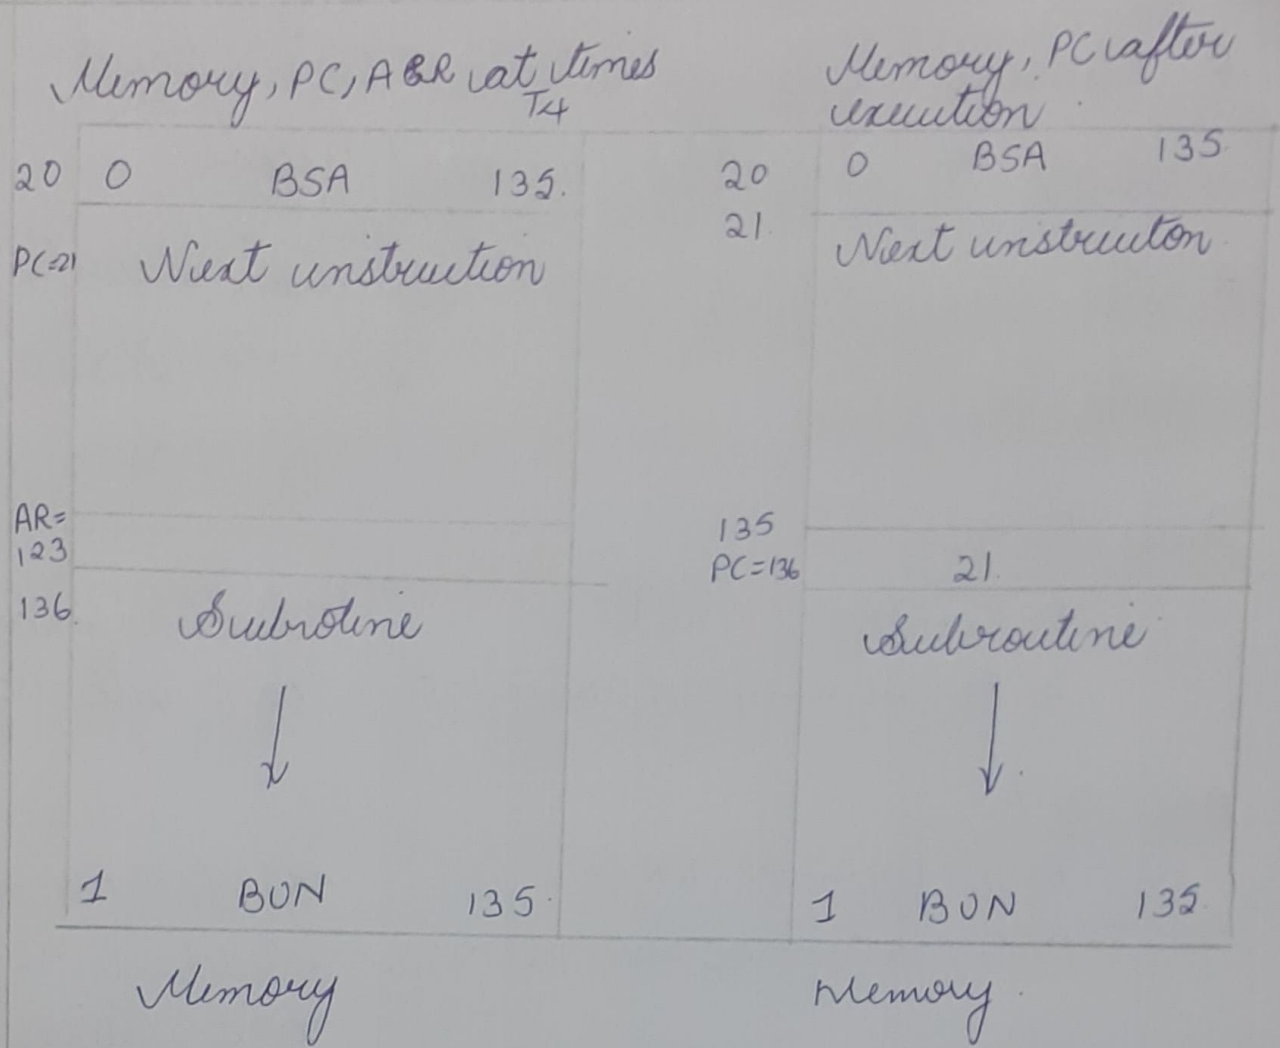 Memory, PC, A&R at times
T4
20 0 BSA 135.
PC=21 Next instruction
AR=
123
136. Subrotine
1 BUN 135.
Memory
Memory, PC after
execution
20 0 BSA 135
21. Next instructon
135
PC=136 21.
Subroutine
1 BUN 135
Memory.